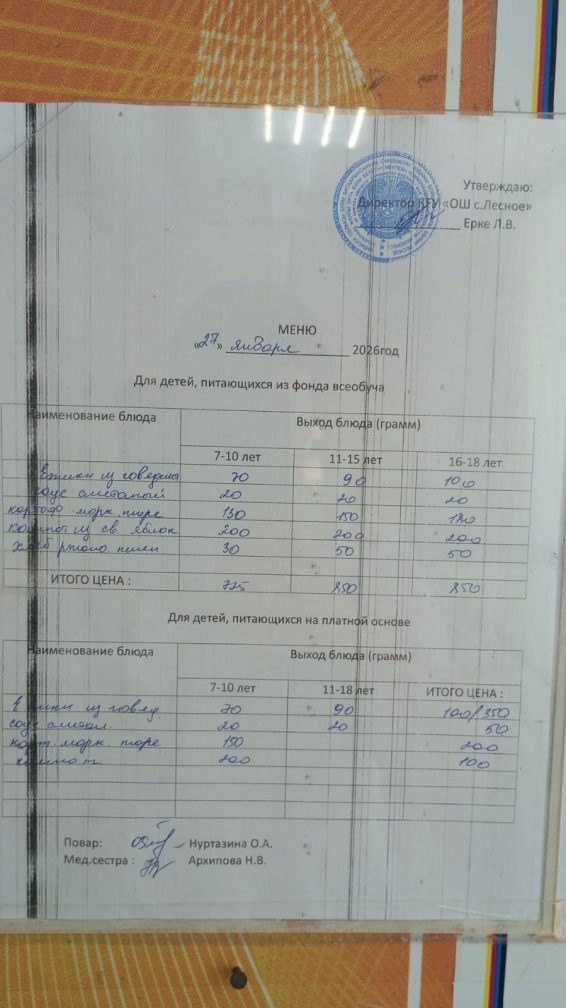 Утверждаю:
Директор КГУ «ОШ с.Лесное»
Ерке Л.В.
МЕНЮ
«27» января 2026год
Для детей, питающихся из фонда всеобуча
Наименование блюда Выход блюда (грамм)
7-10 лет 11-15 лет 16-18 лет
Ежики из говядины 70 90 100
соус сметаный 20 20 20
картоф морк пюре 130 150 180
компот из св. яблок 200 200 200
хлеб ржано пшен 30 50 50
ИТОГО ЦЕНА : 775 850 850
Для детей, питающихся на платной основе
Наименование блюда Выход блюда (грамм)
7-10 лет 11-18 лет ИТОГО ЦЕНА :
Ежики из говяд 70 90 100/350
соус сметан 20 20 50
карт морк пюре 150 200
компот 200 100
Повар: Нуртазина О.А.
Мед.сестра : Архипова Н.В.